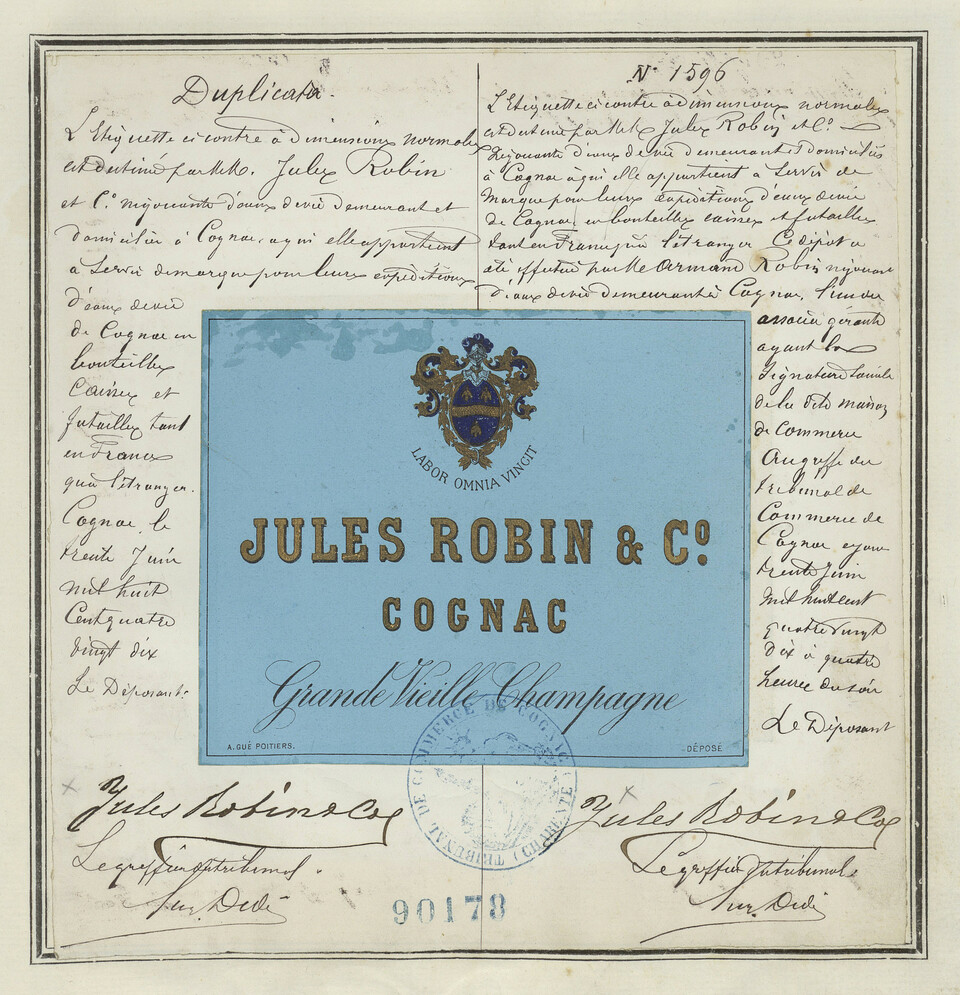 Duplicata.
L'Etiquette ci contre à dimensions normales
est destinée par MM. Jules Robin
et Co. négociants d'eaux de vie demeurant et
domiciliés à Cognac, à qui elle appartient
à servir de marque pour leurs expéditions
d'eaux de vie
de Cognac en
bouteilles
Caisses et
futailles tant
en France
qu'à l'étranger.
Cognac le
trente Juin
mil huit
Cent quatre
vingt dix
Le Déposant.
Jules Robin & Co
Le greffier du tribunal.
No 1596
L'Etiquette ci contre à dimensions normales
est destinée par MM. Jules Robin et Co.
Négociants d'eaux de vie demeurant et domiciliés
à Cognac à qui elle appartient à Servir de
Marque pour leurs expéditions d'eaux de vie
de Cognac en bouteilles caisses et futailles
tant en France qu'à l'étranger. Ce dépôt a
été effectué par Mr Armand Robin négociant
d'eaux de vie demeurant à Cognac, l'un des
associés gérants
ayant la
Signature sociale
de la dite maison
de Commerce
Au greffe du
tribunal de
Commerce de
Cognac ce jour
trente Juin
mil huit cent
quatre vingt
dix à quatre
heures du soir
Le Déposant
Jules Robin & Co
Le greffier du tribunal.
LABOR OMNIA VINCIT
JULES ROBIN & Co.
COGNAC
Grande Vieille Champagne
A. GUÉ POITIERS.
DÉPOSÉ
TRIBUNAL DE COMMERCE DE COGNAC (CHARENTE)
90178